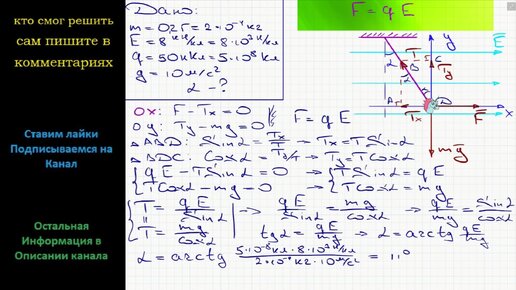 кто смог решить
сам пишите в
комментариях
Ставим лайки
Подписываемся на
Канал
Остальная
Информация в
Описании канала
Дано:
m = 0,2 г = 2·10⁻⁴ кг
E = 8 кН/кл = 8·10³ Н/кл
q = 50 нКл = 5·10⁻⁸ Кл
g = 10 м/с²
α - ?
F = qE
Ox: F - Tx = 0
Oy: Ty - mg = 0
F = qE
△ABD: Sinα = Tx/T → Tx = TSinα
△BDC: Cosα = Ty/T → Ty = TCosα
{ qE - TSinα = 0 → { TSinα = qE
{ TCosα - mg = 0 { TCosα = mg
{ T = qE/Sinα
{ T = mg/Cosα
→ qE/Sinα = mg/Cosα → qE/mg = Sinα/Cosα
tgα = qE/mg → α = arctg qE/mg
α = arctg 5·10⁻⁸ Кл·8·10³ Н/Кл / 2·10⁻⁴ кг·10 м/с² = 11°
y
E
α
T
B
C
Ty
A
D
Tx
F
x
mg